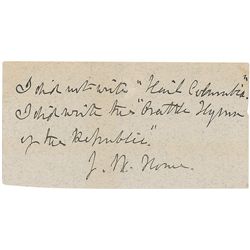 I did not write "Hail Columbia."
I did write the "Battle Hymn
of the Republic."
J. W. Howe.